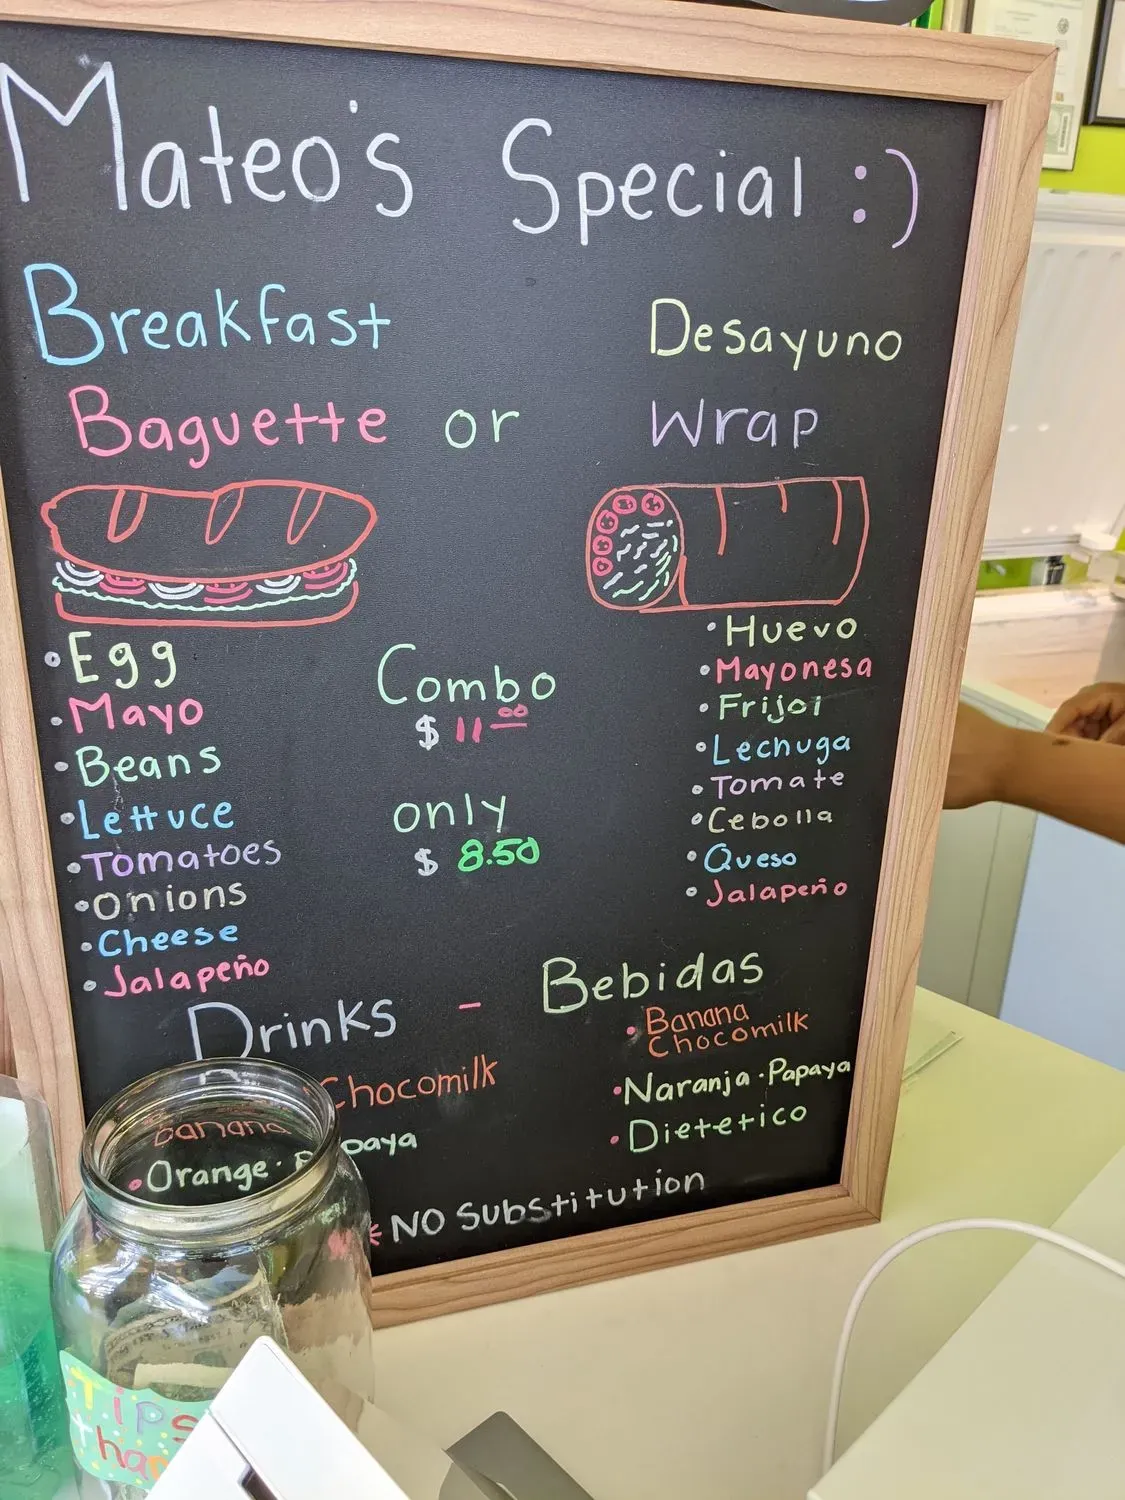 Mateo's Special :)
Breakfast
Desayuno
Baguette or Wrap
• Egg
• Mayo
• Beans
• Lettuce
• Tomatoes
• Onions
• Cheese
• Jalapeño
Combo
$ 11 00
only
$ 8.50
• Huevo
• Mayonesa
• Frijol
• Lechuga
• Tomate
• Cebolla
• Queso
• Jalapeño
Drinks - Bebidas
Chocomilk
Banana
• Orange ·
• Banana
Chocomilk
• Naranja · Papaya
• Dietetico
* NO Substitution
Tips